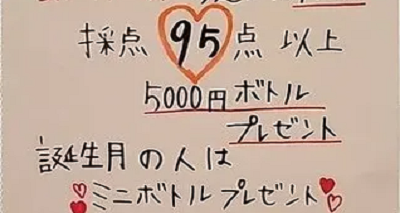 採点 95点 以上
5000円 ボトル
プレゼント
誕生月の人は
ミニボトルプレゼント